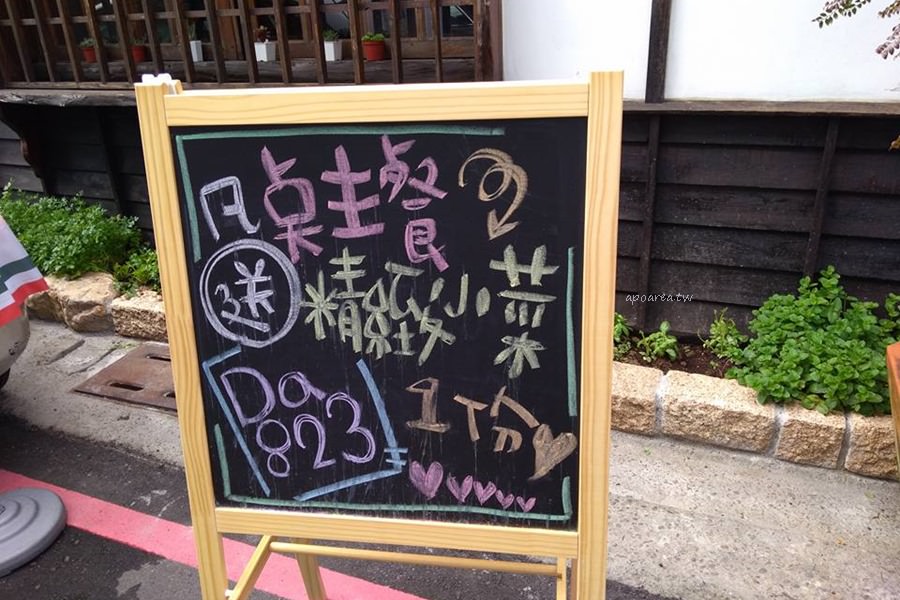 凡桌主餐
送精緻小菜
1份
Da
823
apoarea.tw